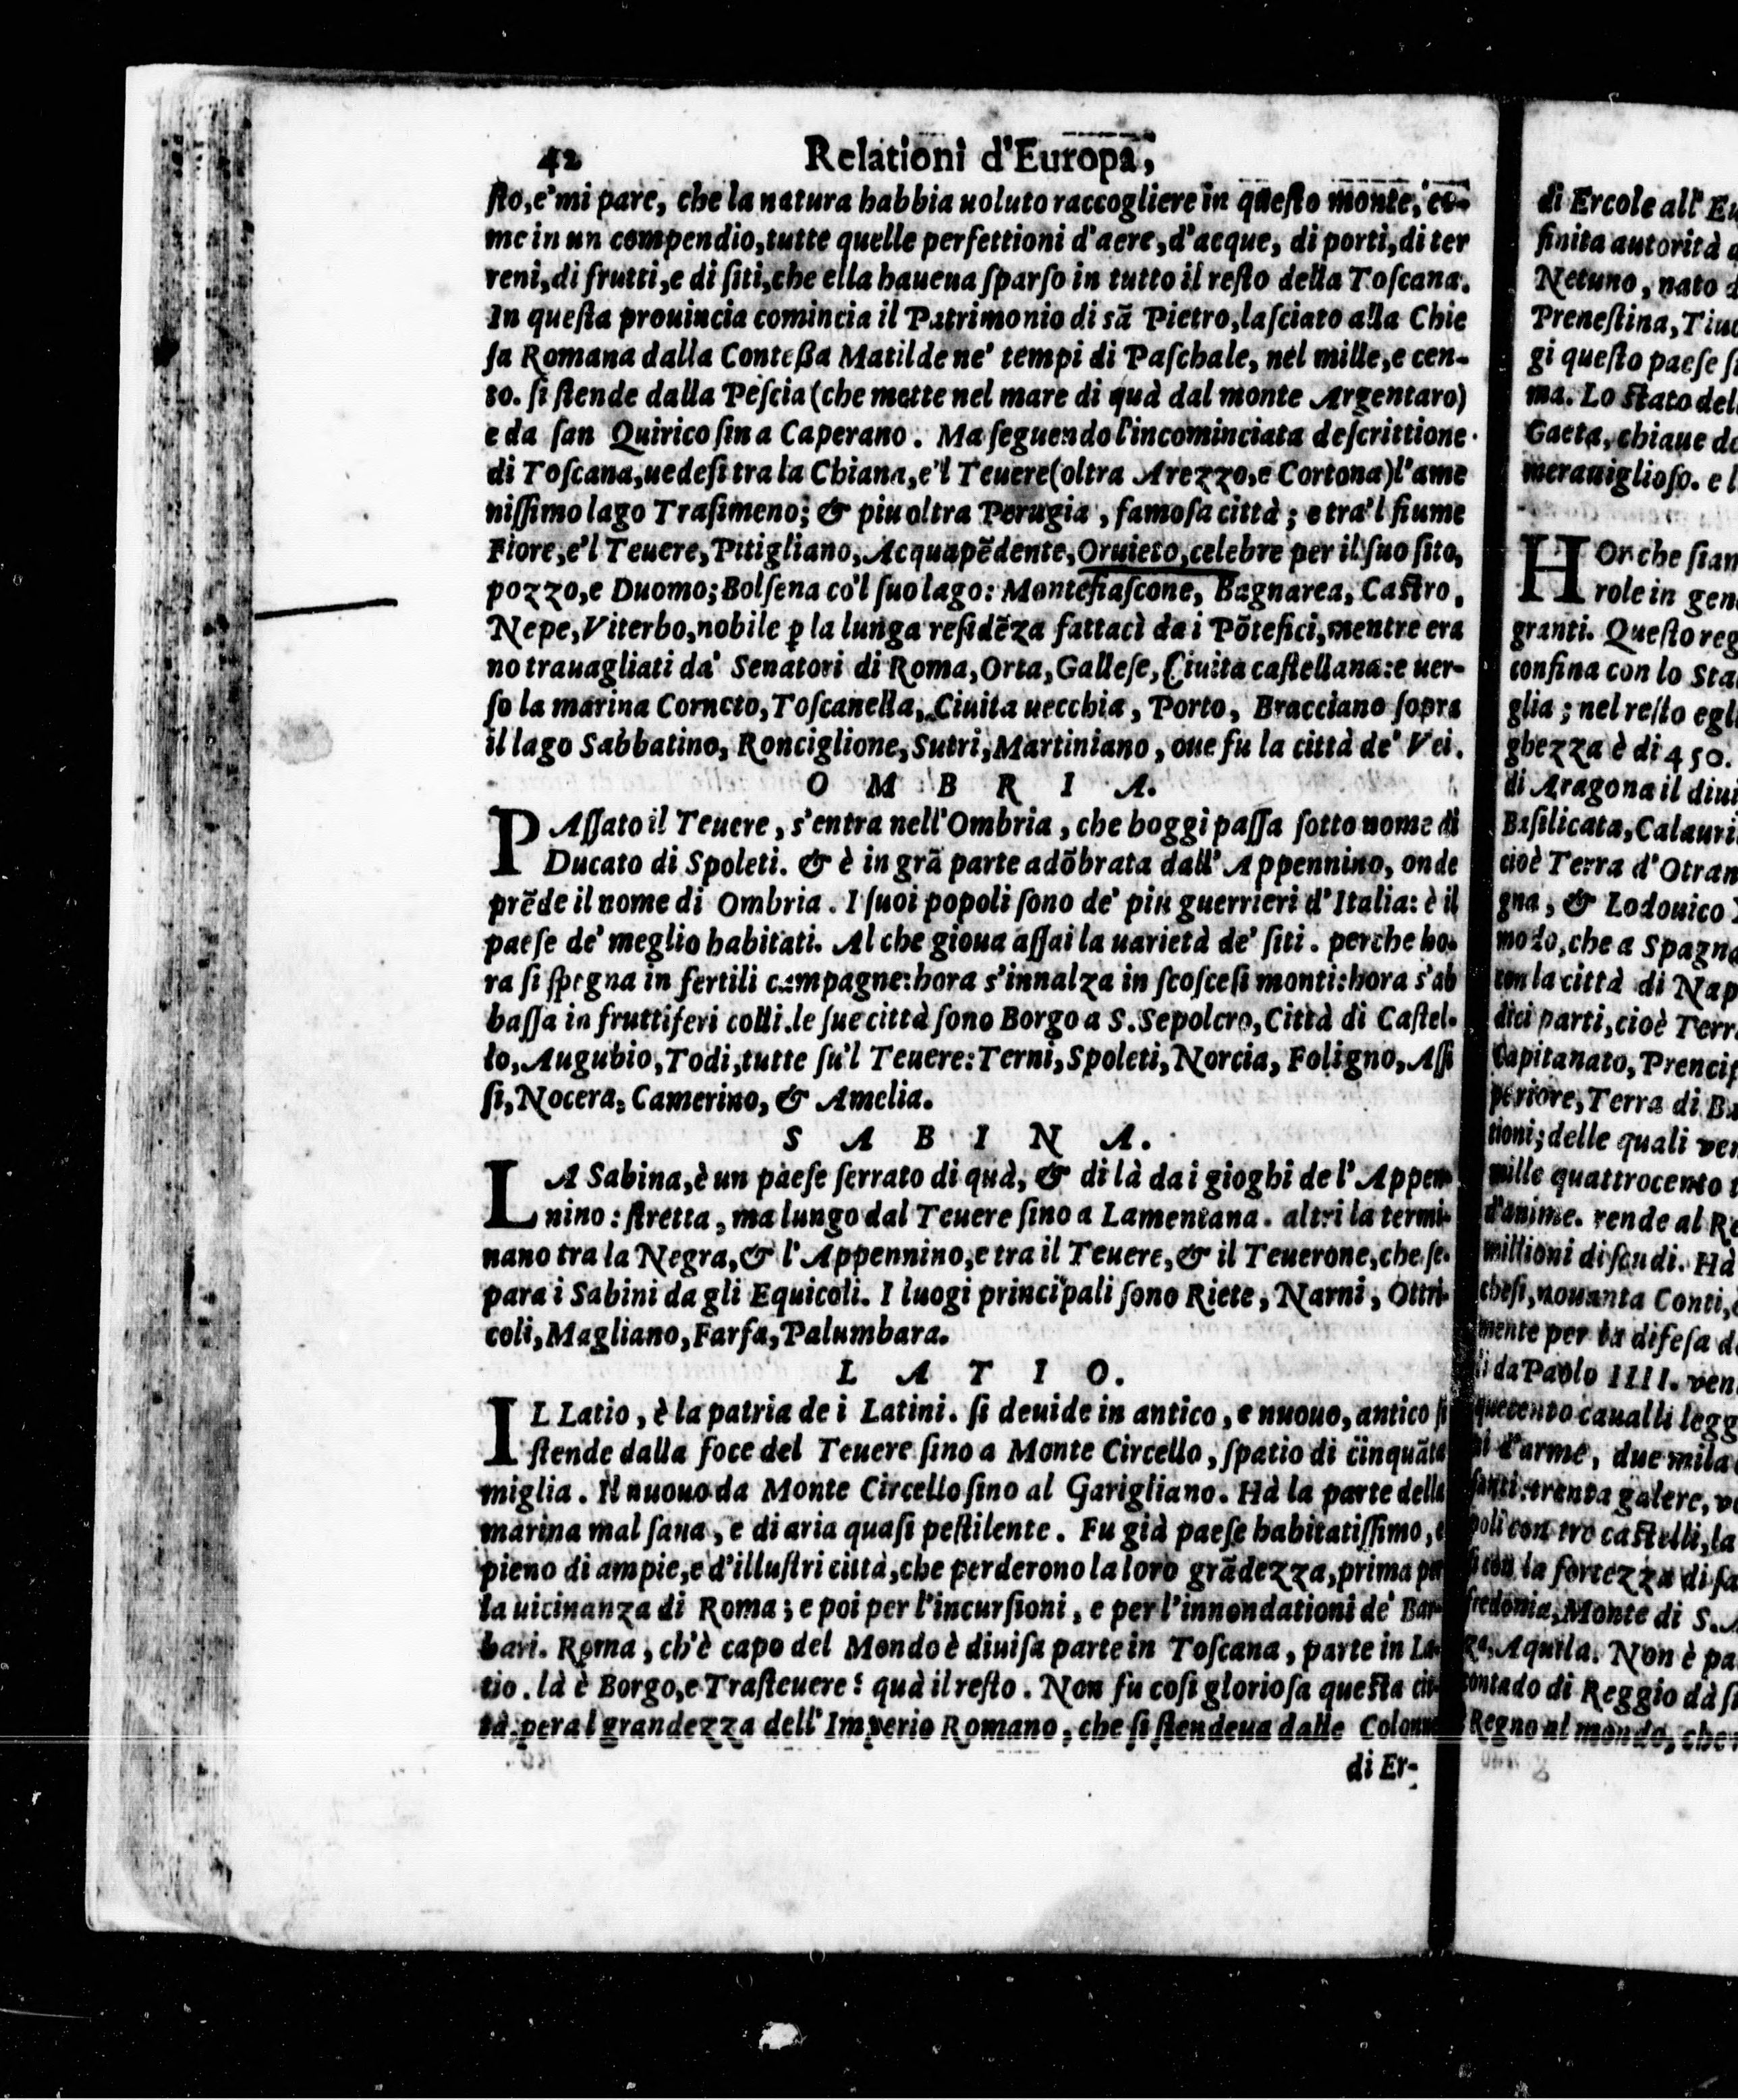 42 Relationi d'Europa,
ſto, e' mi pare, che la natura habbia uoluto raccogliere in queſto monte, co-
me in un compendio, tutte quelle perfettioni d'aere, d'acque, di porti, di ter
reni, di frutti, e di ſiti, che ella haueua ſparſo in tutto il reſto della Toſcana.
In queſta prouincia comincia il Patrimonio di sā Pietro, laſciato alla Chie
ſa Romana dalla Conteßa Matilde ne' tempi di Paſchale, nel mille, e cen-
to. ſi ſtende dalla Peſcia (che mette nel mare di quà dal monte Argentaro)
e da ſan Quirico ſin a Caperano. Ma ſeguendo l'incominciata deſcrittione
di Toſcana, uedeſi tra la Chiana, e'l Teuere (oltra Arezzo, e Cortona) l'ame
niſſimo lago Traſimeno; & piu oltra Perugia, famoſa città; e tra'l fiume
Fiore, e'l Teuere, Pitigliano, Acquapēdente, Oruieto, celebre per il ſuo ſito,
pozzo, e Duomo; Bolſena co'l ſuo lago: Montefiaſcone, Bagnarea, Caſtro,
Nepe, Viterbo, nobile ꝑ la lunga reſidēza fattaci da i Pōtefici, mentre era
no trauagliati da' Senatori di Roma, Orta, Galleſe, Ciuita caſtellana: e uer-
ſo la marina Corneto, Toſcanella, Ciuita uecchia, Porto, Bracciano ſopra
il lago Sabbatino, Ronciglione, Sutri, Martiniano, oue fu la città de' Vei.
O M B R I A.
PAſſato il Teuere, s'entra nell'Ombria, che hoggi paſſa ſotto nome di
Ducato di Spoleti. & è in grā parte adōbrata dall'Appennino, onde
prēde il nome di Ombria. I ſuoi popoli ſono de' piu guerrieri d'Italia: è il
paeſe de' meglio habitati. Al che gioua aſſai la uarietà de' ſiti. perche ho-
ra ſi ſpegna in fertili campagne: hora s'innalza in ſcoſceſi monti: hora s'ab
baſſa in fruttiferi colli. le ſue città ſono Borgo a S. Sepolcro, Città di Caſtel-
lo, Augubio, Todi, tutte ſu'l Teuere: Terni, Spoleti, Norcia, Foligno, Aſſi
ſi, Nocera, Camerino, & Amelia.
S A B I N A.
LA Sabina, è un paeſe ſerrato di quà, & di là da i gioghi de l'Appen-
nino: ſtretta, ma lungo dal Teuere ſino a Lamentana. altri la termi-
nano tra la Negra, & l'Appennino, e tra il Teuere, & il Teuerone, che ſe-
para i Sabini da gli Equicoli. I luogi principali ſono Riete, Narni, Ottri-
coli, Magliano, Farfa, Palumbara.
L A T I O.
IL Latio, è la patria de i Latini. ſi deuide in antico, e nuouo, antico ſi
ſtende dalla foce del Teuere ſino a Monte Circello, ſpatio di cinquāta
miglia. Il nuouo da Monte Circello ſino al Garigliano. Hà la parte della
marina mal ſana, e di aria quaſi peſtilente. Fu già paeſe habitatiſſimo, e
pieno di ampie, e d'illuſtri città, che perderono la loro grādezza, prima per
la uicinanza di Roma; e poi per l'incurſioni, e per l'innondationi de' Bar-
bari. Roma, ch'è capo del Mondo è diuiſa parte in Toſcana, parte in La-
tio. là è Borgo, e Traſteuere: quà il reſto. Non fu coſi glorioſa queſta cit-
tà per al grandezza dell'Imperio Romano, che ſi ſtendeua dalle Colonne
di Er-
di Ercole all'
finita autorità
Netuno, nato
Preneſtina,
gi queſto paeſe
ma. Lo ſtato
Gaeta, chiaue
merauiglioſo. e
HOr che
role in
granti. Queſto
confina con lo
glia; nel reſto
ghezza è di 450.
di Aragona il
Baſilicata,
cioè Terra d'
gna, & Lodouico
modo, che a
con la città di
dici parti, cioè
Capitanato,
periore, Terra di
tioni; delle quali
mille quattrocento
d'anime. rende al
millioni di ſcudi. Hà
cheſi, nouanta Conti,
mente per la difeſa
li da Paolo IIII.
quecento caualli
ni d'arme, due mila
fanti: trenta galere,
poli con tre caſtelli, la
ſi con la fortezza di
fredonia, Monte di S.
ga, Aquila. Non è
contado di Reggio dà
Regno al mondo,